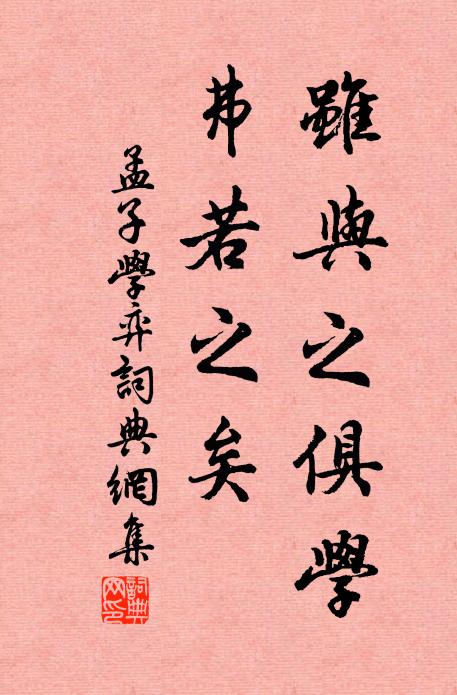 雖與之俱學
弗若之矣
孟子學弈詞典網集
詞典網印